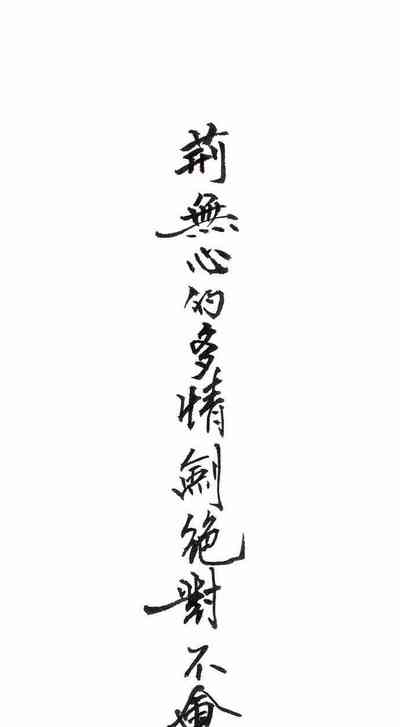 荆無心的多情劍絕對不會